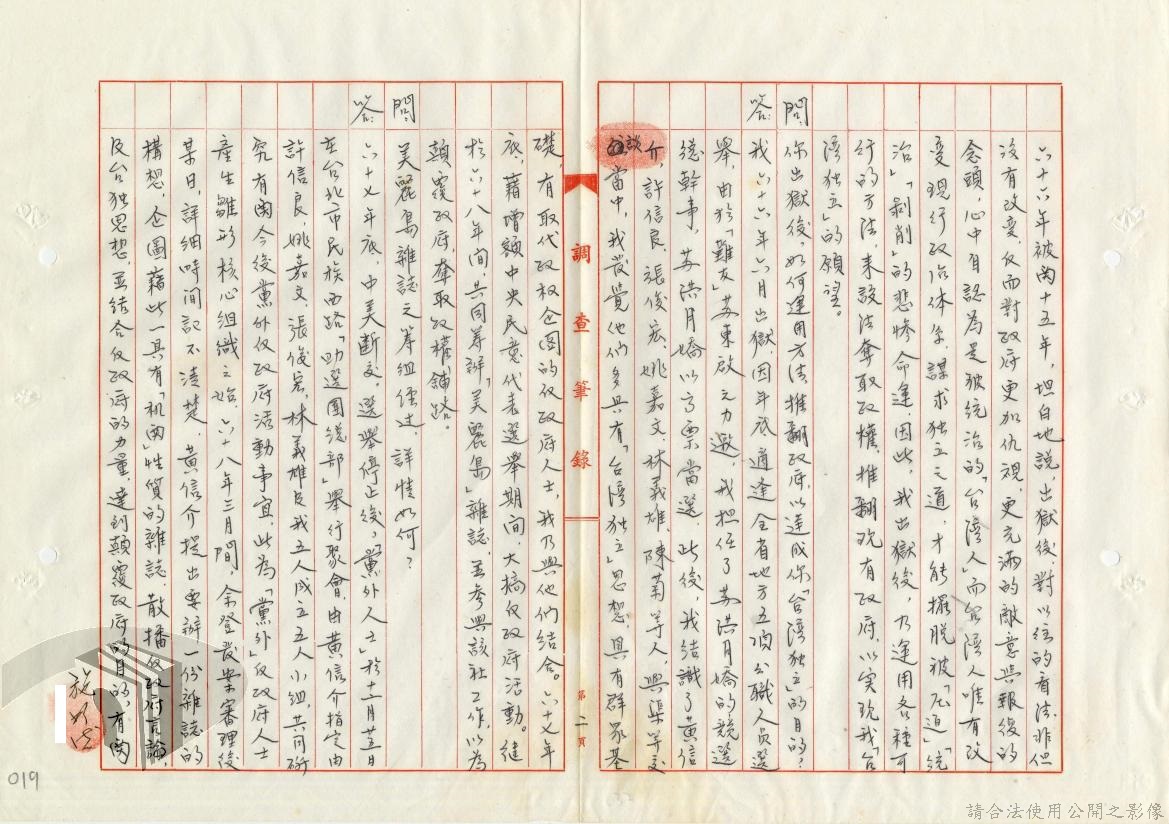 六十六年被關十五年，坦白地說，出獄後，對以往的看法非但
沒有改變，反而對政府更加仇視，更充滿的敵意與報復的
念頭，心中自認為是被統治的「台湾人」而台湾人唯有改
变現行政治体系，謀求独立之道，才能擺脫被「压迫」「統
治」「剝削」的悲慘命運因此，我出獄後，乃運用各種可
行的方法，来設法奪取政權，推翻現有政府，以实現我「台
湾独立」的願望。
問：你出獄後，如何運用方法推翻政府，以達成你「台湾独立」的目的？
答：我六十六年六月出獄，因年底適逢全省地方五項公職人員選
舉，由於「難友」苏東啟之力邀，我担任了苏洪月嬌的競選
總幹事，苏洪月嬌以高票當選，此後，我結識了黃信
介，許信良，張俊宏，姚嘉文，林義雄，陳菊等人，與渠等交
談當中，我發覺他們多具有「台湾独立」思想，具有群眾基
調查筆錄
第二頁
礎，有取代政权企圖的反政府人士，我乃與他們結合。六十七年
底，藉增額中央民意代表選舉期间，大搞反政府活動。继
於六十八年间，共同籌辦「美麗島」雜誌，並參與該社工作，以為
顛覆政府，奪取政權舖路。
問：美麗島雜誌之籌組经过，詳情如何？
答：六十七年底，中美断交，選舉停止後，「黨外人士」於十二月廿五日
在台北市民族西路「助選團總部」舉行聚會由黃信介指定由
許信良，姚嘉文，張俊宏，林義雄及我五人成立五人小組，共同研
究有關今後黨外反政府活動事宜，此為「黨外」反政府人士
產生雛形核心組織之始，六十八年三月間，余登發案審理後
某日，詳細時间記不清楚，黃信介提出要辦一份雜誌的
構想，企圖藉此一具有「机関」性質的雜誌，散播反政府言論
及台独思想，並結合反政府的力量，達到顛覆政府的目的，有関
施明德
019
請合法使用公開之影像